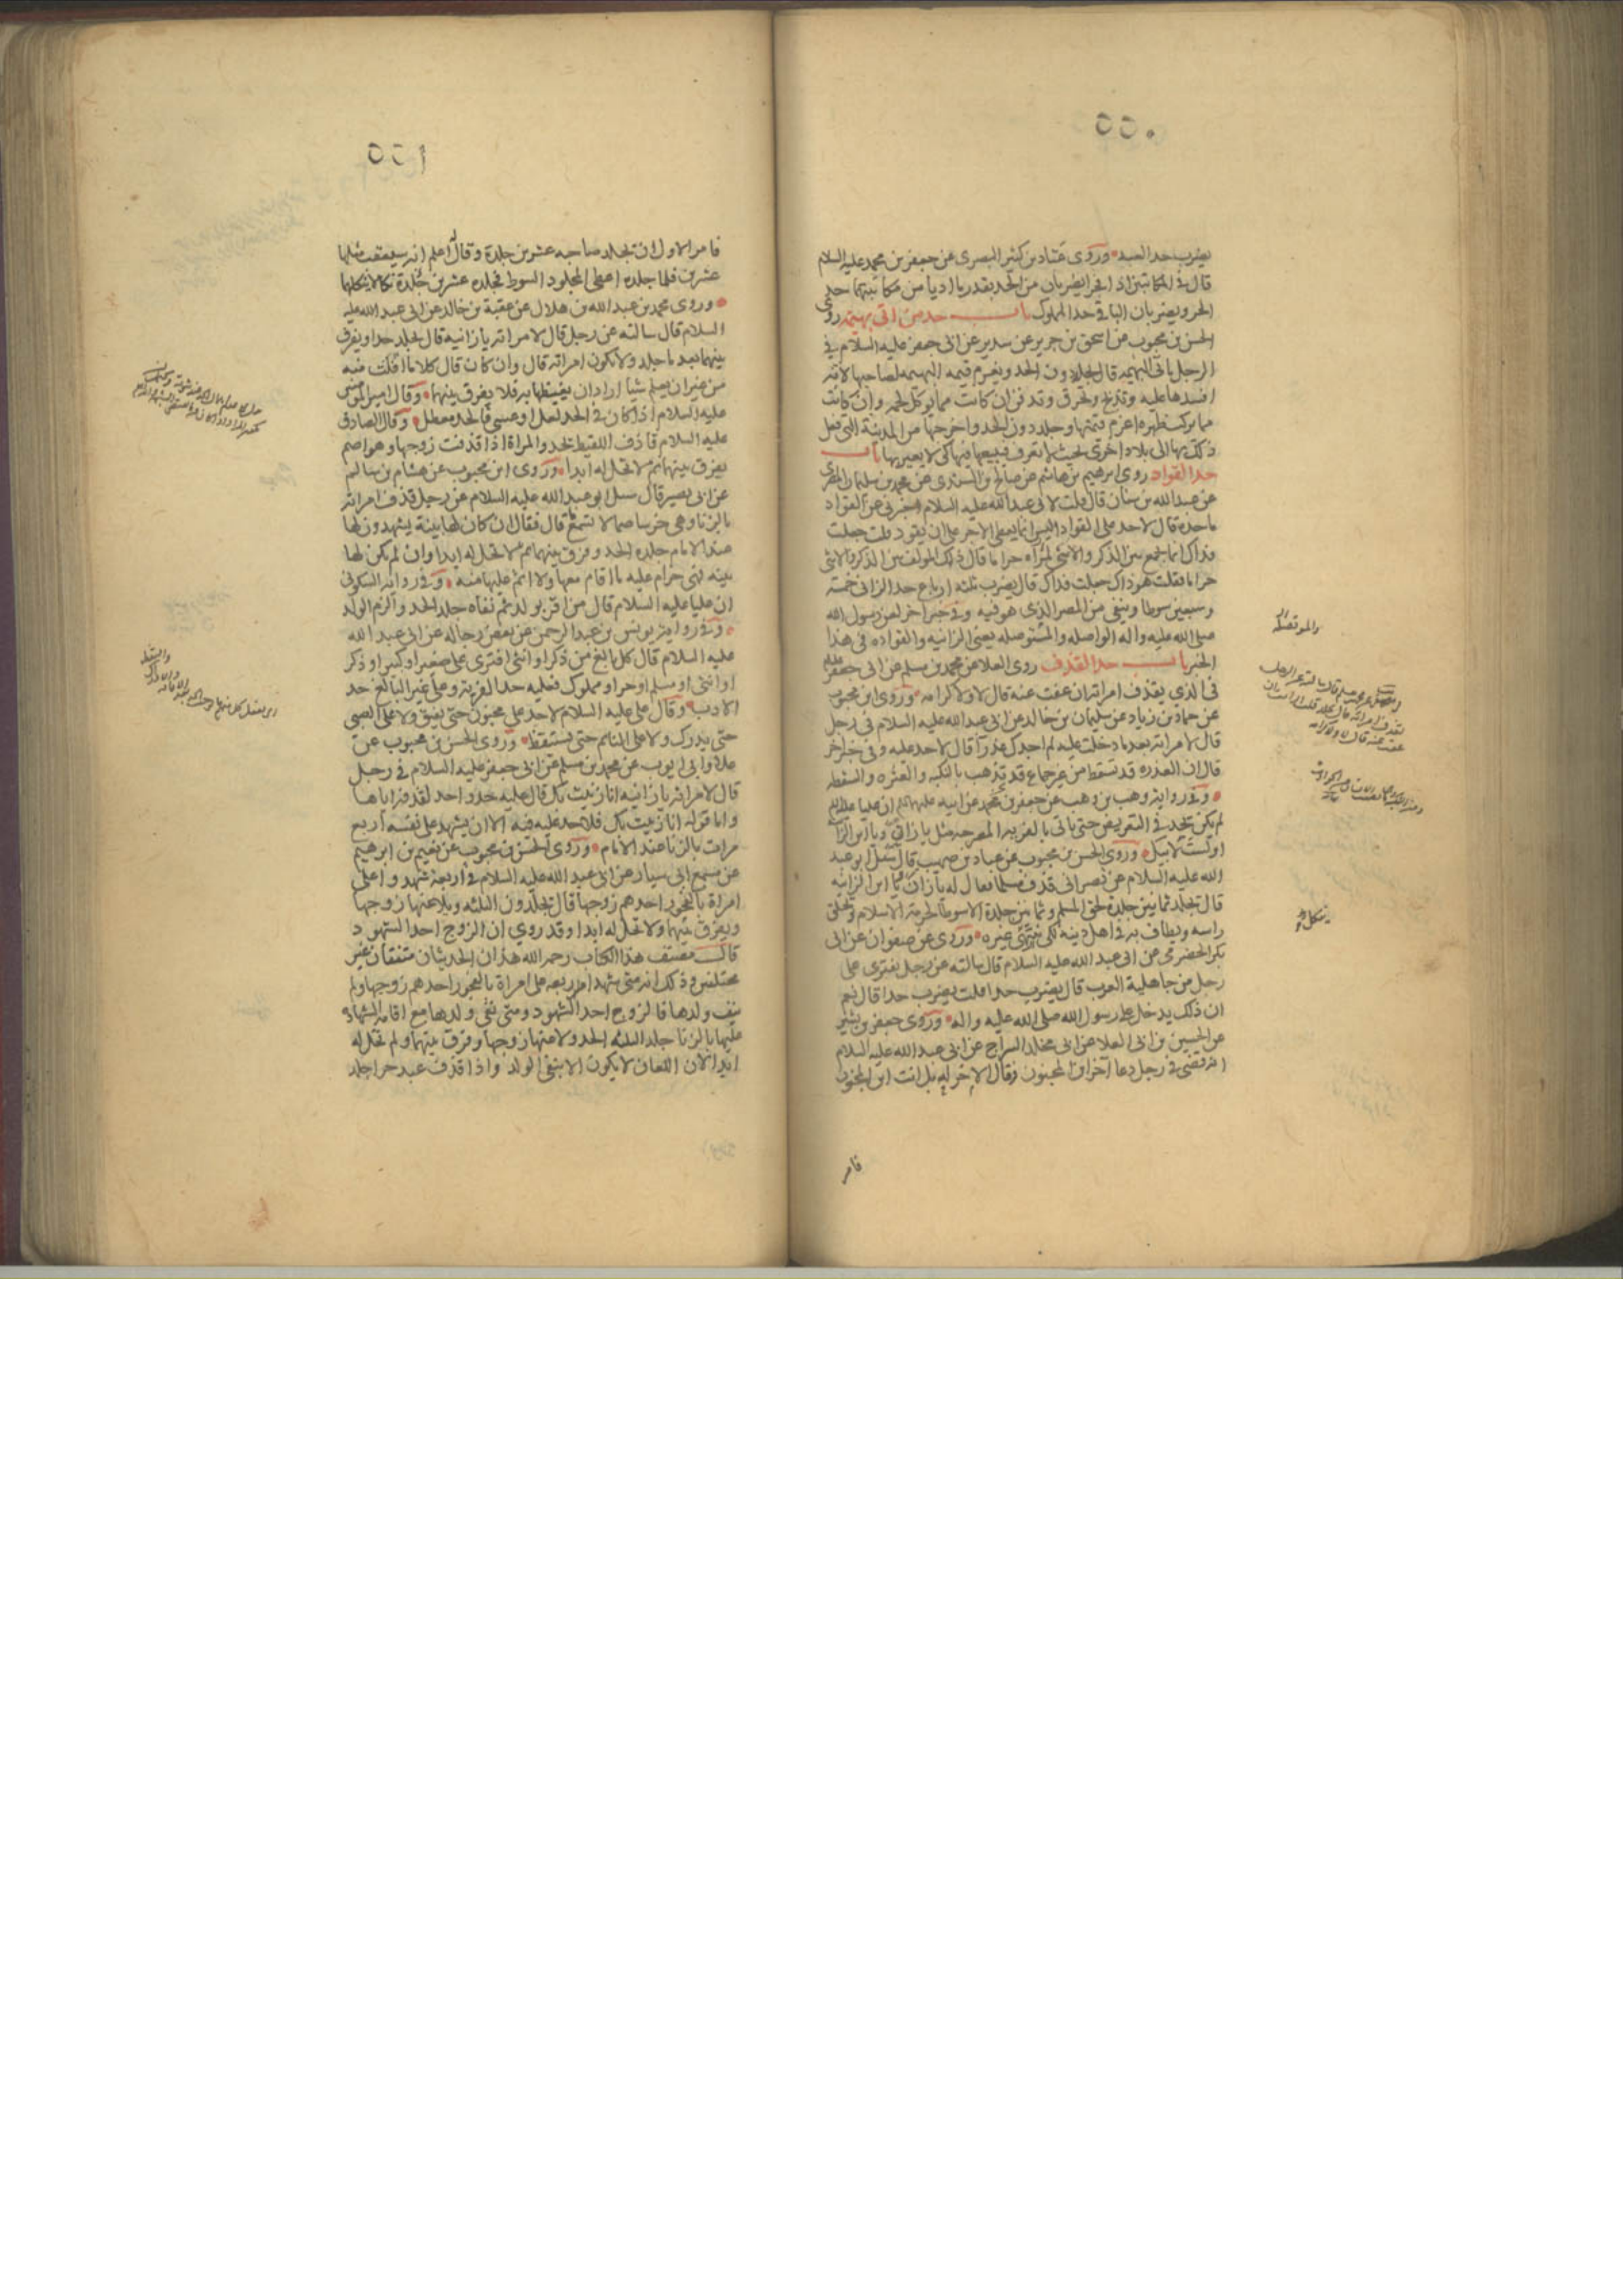 ٥٥٠
يضرب حد العبد وروى عباد بن كثير البصرى عن جعفر بن محمد عليه السلام
قال فى المكاتبين اذا فجرا يضربان من الحد بقدر ما اديا من مكاتبتهما حد
الحر ويضربان الباقى حد المملوك باب حد من اتى بهيمة روى
الحسن بن محبوب عن اسحق بن جرير عن سدير عن ابى جعفر عليه السلام فى
الرجل ياتى البهيمه قال يجلد دون الحد ويغرم قيمه البهيمه لصاحبها لانه
افسدها عليه وتذبح وتحرق وتدفن ان كانت مما يوكل لحمه وان كانت
مما يركب ظهره اغرم قيمتها وجلد دون الحد واخرجها من المدينة التى فعل
ذلك بها الى بلاد اخرى بحيث لا تعرف فيبيعها فيها كى لا يعير بها باب
حد القواد روى ابرهيم بن هاشم عن صالح بن السندى عن محمد بن سليمان المصرى
عن عبد الله بن سنان قال قلت لابى عبد الله عليه السلام اخبرنى عن القواد
ما حده قال لا حد على القواد اليس انما يعطى الاجر على ان يقود قلت جعلت
فداك انما يجمع بين الذكر والانثى حراما قال ذلك المولف بين الذكر والانثى
حراما فقلت هو ذاك جعلت فداك قال يضرب ثلثه ارباع حد الزانى خمسة
وسبعين سوطا وينفى من المصر الذى هو فيه وفى خبر اخر لعن رسول الله
صلى الله عليه واله الواصله والمستوصله يعنى الزانيه والقواده فى هذا
الخبر باب حد القذف روى العلا عن محمد بن مسلم عن ابى جعفر عليه
فى الذى يقذف امراته ان عفت عنه قال لا ولا كرامه وروى ابن محبوب
عن حماد بن زياد عن سليمان بن خالد عن ابى عبد الله عليه السلام فى رجل
قال لامراته بعد ما دخلت عليه لم اجدك عذرآ قال لا حد عليه وفى خبر اخر
قال ان العذره قد تسقط من غير جماع قد تذهب بالنكبه والعثره والسقطه
وفى رواية وهب بن وهب عن جعفر بن محمد عن ابيه عليهما السلام ان عليا عليه السلام
لم يكن يحد فى التعريض حتى ياتى بالفريه المصرحه مثل يا زانى ويا ابن الزانيه
او لست لابيك وروى الحسن بن محبوب عن عباد بن صهيب قال سئل ابو عبد
الله عليه السلام عن نصرانى قذف مسلما فقال له يا زان يا ابن الزانيه
قال يجلد ثمانين جلدة لحق المسلم وثمانين جلدة الا سوطا لحرمة الاسلام ويحلق
راسه ويطاف به فى اهل دينه لكى ينتهى غيره وروى عن صفوان عن ابى
بكر الحضرمى عن ابى عبد الله عليه السلام قال سالته عن رجل يفترى على
رجل من جاهلية العرب قال يضرب حدا قلت يضرب حدا قال نعم
ان ذلك يدخل على رسول الله صلى الله عليه واله وروى جعفر بن بشير
عن الحسين بن ابى العلا عن ابى مخلد السراج عن ابى عبد الله عليه السلام
انه قضى فى رجل دعا اخر ابن المجنون فقال الاخر له بل انت ابن المجنون
فامر
والموتصله
ينكل
٥٥١
فامر الاول ان يجلد صاحبه عشرين جلدة وقال له اعلم انه سيعقب مثلها
عشرين فلما جلده اعطى المجلود السوط فجلده عشرين جلدة نكالا ينكلهما
وروى محمد بن عبد الله بن هلال عن عقبة بن خالد عن ابى عبد الله عليه
السلام قال سالته عن رجل قال لامراته يا زانيه قال يجلد حدا ويفرق
بينهما بعد ما جلد ولا تكون امراته قال وان كان قال كلاما افلت منه
من غير ان يعلم شيا اراد ان يغيظها به فلا يفرق بينهما وقال امير المومنين
عليه السلام اذا كان فى الحد لعل او عسى فالحد معطل وقال الصادق
عليه السلام قاذف اللقيط يحد والمراة اذا قذفت زوجها وهو اصم
يفرق بينهما ثم لا تحل له ابدا وروى ابن محبوب عن هشام بن سالم
عن ابى بصير قال سئل ابو عبد الله عليه السلام عن رجل قذف امراته
بالزنا وهى خرسا صما لا تسمع قال فقال ان كان لها بينة يشهدون لها
عند الامام جلده الحد وفرق بينهما ثم لا تحل له ابدا وان لم يكن لها
بينه فهى حرام عليه ما اقام معها ولا اثم عليها منه وفى رواية السكونى
ان عليا عليه السلام قال من اقر بولد ثم نفاه جلد الحد والزم الولد
وفى رواية يونس بن عبد الرحمن عن بعض رجاله عن ابى عبد الله
عليه السلام قال كل بالغ من ذكر او انثى افترى على صغير او كبير او ذكر
او انثى او مسلم او حر او مملوك فعليه حد الفرية وعلى غير البالغ حد
الادب وقال على عليه السلام لا حد على مجنون حتى يفيق ولا على الصبى
حتى يدرك ولا على النائم حتى يستيقظ وروى الحسن بن محبوب عن
علا وابى ايوب عن محمد بن مسلم عن ابى جعفر عليه السلام فى رجل
قال لامراته يا زانيه انا زنيت بك قال عليه حد واحد لقذفه اياها
واما قوله انا زنيت بك فلا حد عليه فيه الا ان يشهد على نفسه اربع
مرات بالزنا عند الامام وروى الحسن بن محبوب عن نعيم بن ابرهيم
عن مسمع ابى سيار عن ابى عبد الله عليه السلام فى اربعة شهدوا على
امراة بالفجور احدهم زوجها قال يجلدون الثلثه ويلاعنها زوجها
ويفرق بينهما ولا تحل له ابدا وقد روى ان الزوج احد الشهود
قال مصنف هذا الكتاب رحمه الله هذان الحديثان متفقان غير
مختلفين وذلك انه متى شهد اربعه على امراة بالفجور احدهم زوجها ولم
ينف ولدها فالزوج احد الشهود ومتى نفى ولدها مع اقامة الشهادة
عليها بالزنا جلد الثلثه الحد ولاعنها زوجها وفرق بينهما ولم تحل له
ابدا لان اللعان لا يكون الا بنفى الولد واذا قذف عبد حرا جلد